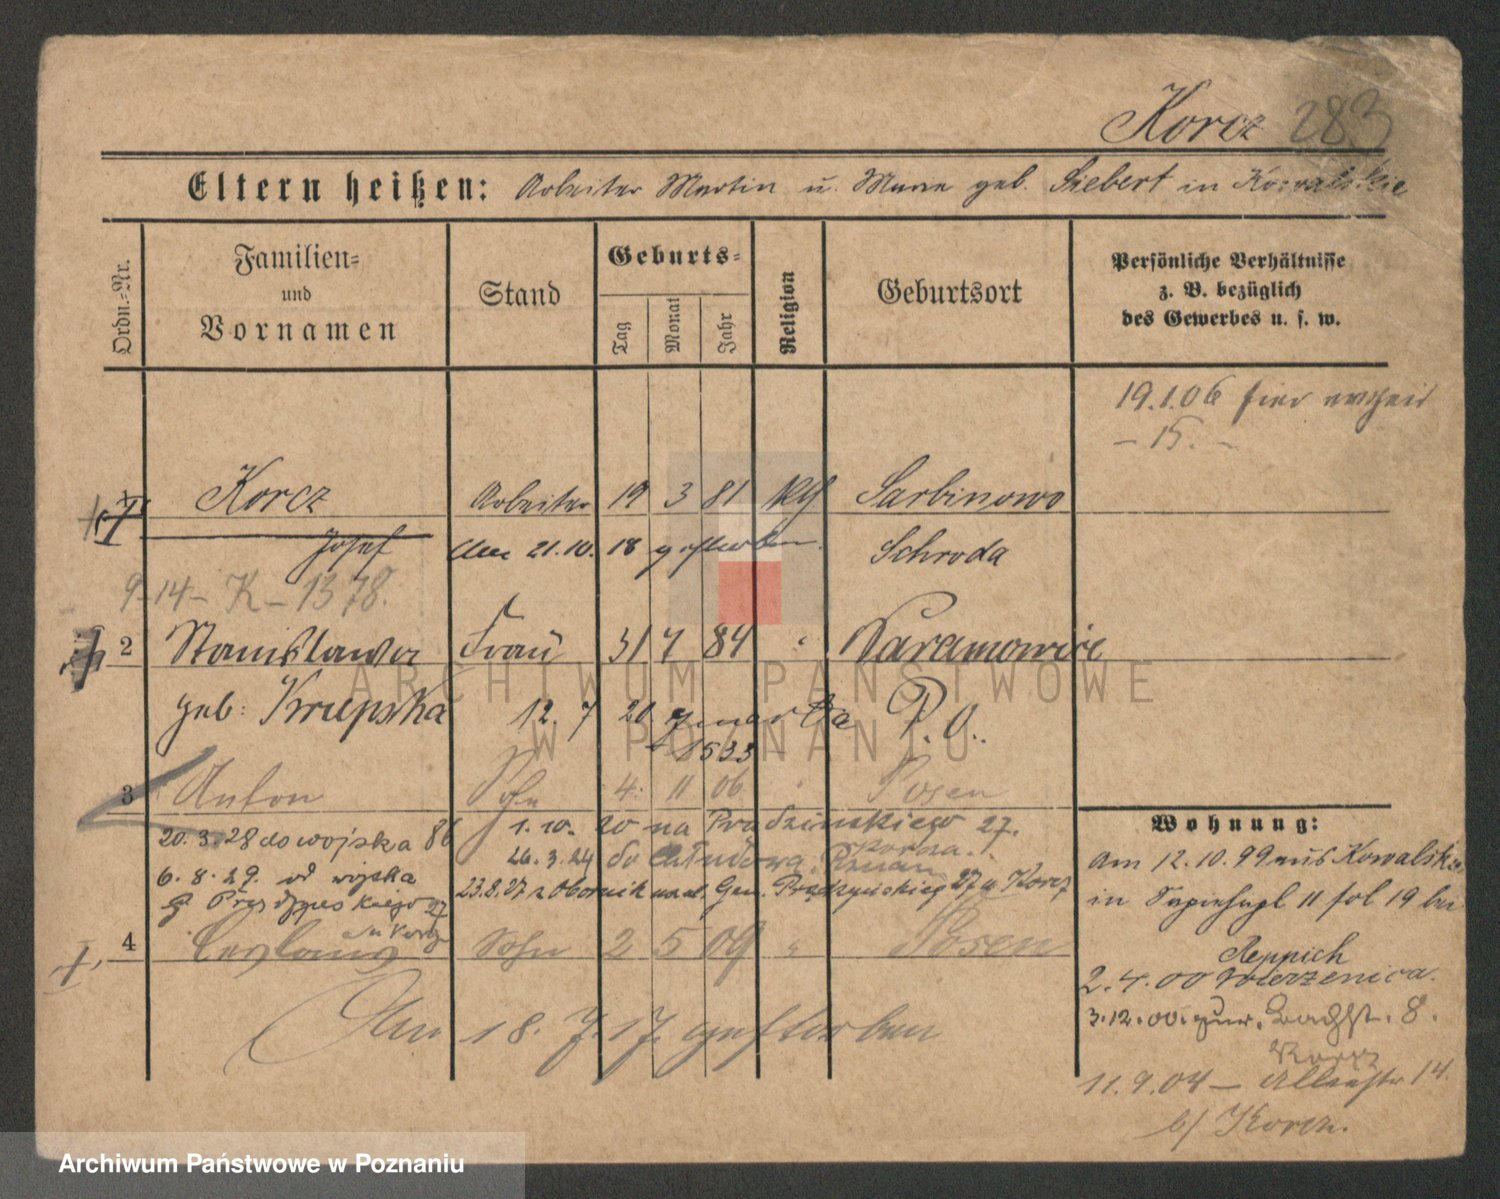 Korcz 283
Eltern heißen: Arbeiter Martin u. Marie geb. Siebert in Kowalskie
Ordn.-Nr.
Familien-
und
Vornamen
Stand
Geburts-
Tag
Monat
Jahr
Religion
Geburtsort
Persönliche Verhältnisse
z. B. bezüglich
des Gewerbes u. s. w.
19.1.06 hier
- 15. -
Korcz Arbeiter 19 3 81 kth Sarbinowo
Josef Am 21.10. 18 gestorben Schroda
9-14- K - 1378.
2 Stanislawa Frau 31 7 84 " 
geb: Krupska 12. 7 20 zmarła P. O.
1533
3 Anton Sohn 4. 11 06 " Posen
20. 3. 28 do wojska 86 1. 10. 20 na Prądzińskiego 27.
Korcz
6. 8. 29. od wojska 26. 3. 24 do
27 23.8.27 z Obornik Gen. Prądzyńskieg 27 u Korcz
u Korcz
4 Sohn 2 5 09 " Posen
Am 18. 7. 17. gestorben
Wohnung:
Am 12. 10. 99 aus Kowalskie
in 11 fol 19 bei
Aeppich
2. 4. 00 Wierzenica.
3. 12. 00. zur. Bachstr. 8.
Korcz
11. 9. 04 - 14.
b/ Korcz.
ARCHIWUM PAŃSTWOWE
W POZNANIU
Archiwum Państwowe w Poznaniu